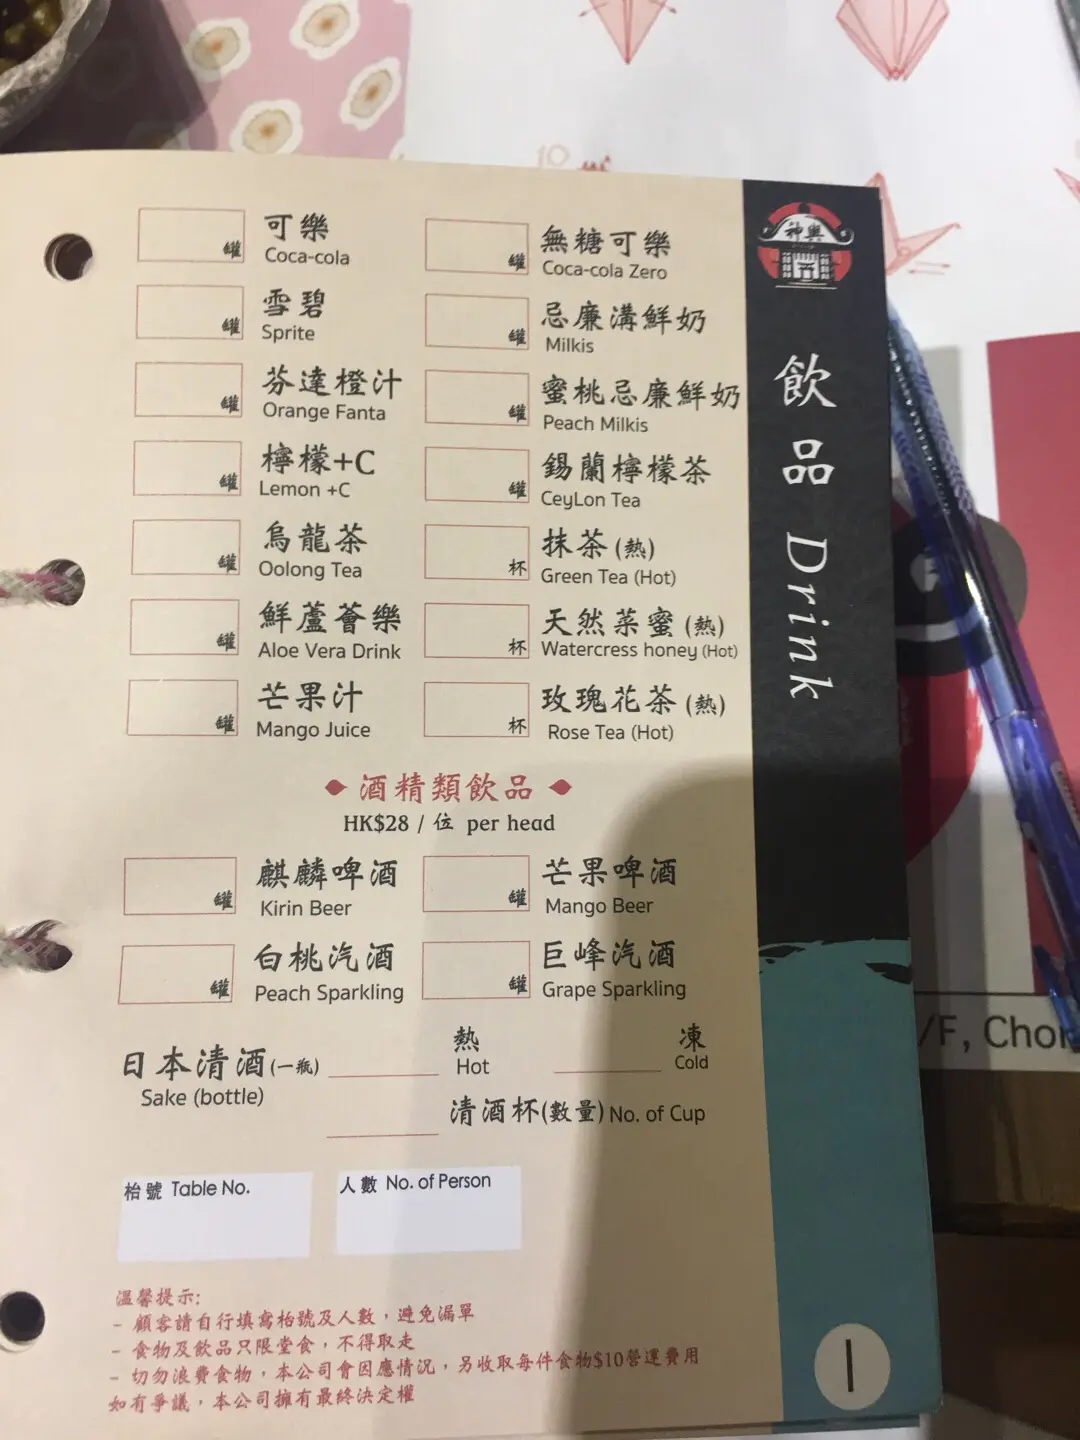 神輿
飲品 Drink
罐 可樂
Coca-cola
罐 無糖可樂
Coca-cola Zero
罐 雪碧
Sprite
罐 忌廉溝鮮奶
Milkis
罐 芬達橙汁
Orange Fanta
罐 蜜桃忌廉鮮奶
Peach Milkis
罐 檸檬+C
Lemon +C
罐 錫蘭檸檬茶
CeyLon Tea
罐 烏龍茶
Oolong Tea
杯 抹茶(熱)
Green Tea (Hot)
罐 鮮蘆薈樂
Aloe Vera Drink
杯 天然菜蜜(熱)
Watercress honey (Hot)
罐 芒果汁
Mango Juice
杯 玫瑰花茶(熱)
Rose Tea (Hot)
酒精類飲品
HK$28 / 位 per head
罐 麒麟啤酒
Kirin Beer
罐 芒果啤酒
Mango Beer
罐 白桃汽酒
Peach Sparkling
罐 巨峰汽酒
Grape Sparkling
日本清酒(一瓶)
Sake (bottle)
熱
Hot
凍
Cold
清酒杯(數量) No. of Cup
枱號 Table No.
人數 No. of Person
溫馨提示:
- 顧客請自行填寫枱號及人數，避免漏單
- 食物及飲品只限堂食，不得取走
- 切勿浪費食物，本公司會因應情況，另收取每件食物$10營運費用
如有爭議，本公司擁有最終決定權
1
/F, Chon